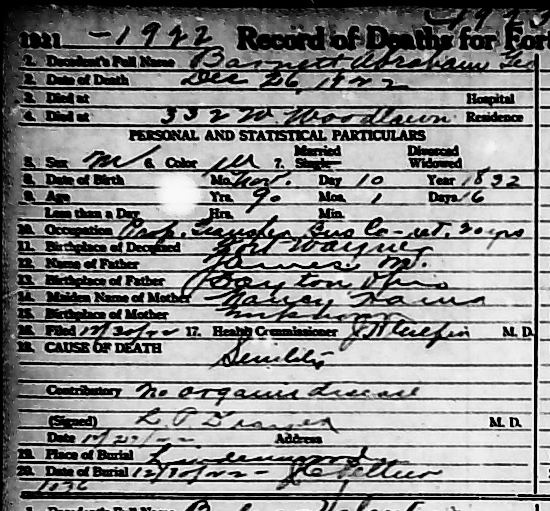 1921 - 1922 Record of Deaths for Fort
1. Decedent's Full Name Barnett Abraham Geo
2. Date of Death Dec 26, 1922
3. Died at Hospital
4. Died at 332 W. Woodlawn Residence
PERSONAL AND STATISTICAL PARTICULARS
5. Sex M 6. Color W 7. Married Single Divorced Widowed
8. Date of Birth Mo. Nov. Day 10 Year 1832
9. Age Yrs. 90 Mos. 1 Days 16
Less than a Day Hrs. Min.
10. Occupation Prop. Transfer Bus Co - ret. 20 yrs
11. Birthplace of Deceased Fort Wayne
12. Name of Father James M.
13. Birthplace of Father Dayton Ohio
14. Maiden Name of Mother Nancy
15. Birthplace of Mother Unknown
16. Filed 12/30/22 17. Health Commissioner M. D.
18. CAUSE OF DEATH
Senility
Contributory No organic disease
(Signed) L. P. M. D.
Date 12/27/22 Address
19. Place of Burial Lindenwood
20. Date of Burial 12/30/22 -
1. Decedent's Full Name